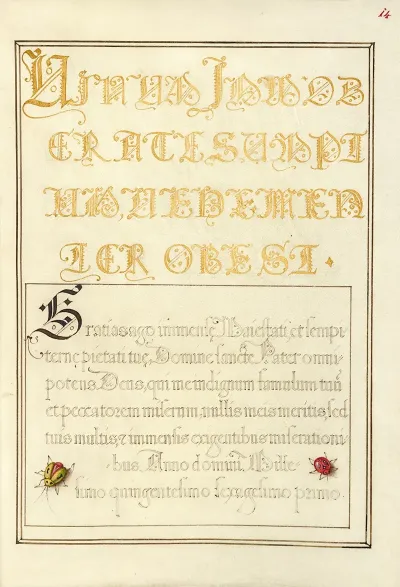 i4
VINUM IMMOD
ERATE SUMPT
UM, VEHEMEN
TER OBEST.
Gratias ago immensę Maiestati, et sempi-
ternę pietati tuę, Domine sancte Pater omni-
potens Deus, qui me indignum famulum tuũ
et peccatorem miserum, nullis meis meritis, sed
tuis multis, et immensis exigentibus miserationi-
bus. Anno domini, Mille-
simo quingentesimo sexagesimo primo.